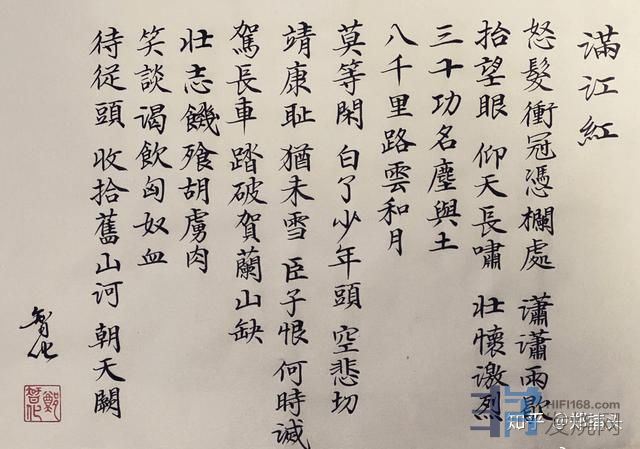 滿江紅
怒髮衝冠憑欄處 瀟瀟雨歇
抬望眼 仰天長嘯 壯懷激烈
三十功名塵與土
八千里路雲和月
莫等閑 白了少年頭 空悲切
靖康耻 猶未雪 臣子恨 何時滅
駕長車 踏破賀蘭山缺
壯志饑飱胡虜肉
笑談渴飲匈奴血
待從頭 收拾舊山河 朝天闕
智化
鄭智化
HIFI168.com
发烧网
知乎